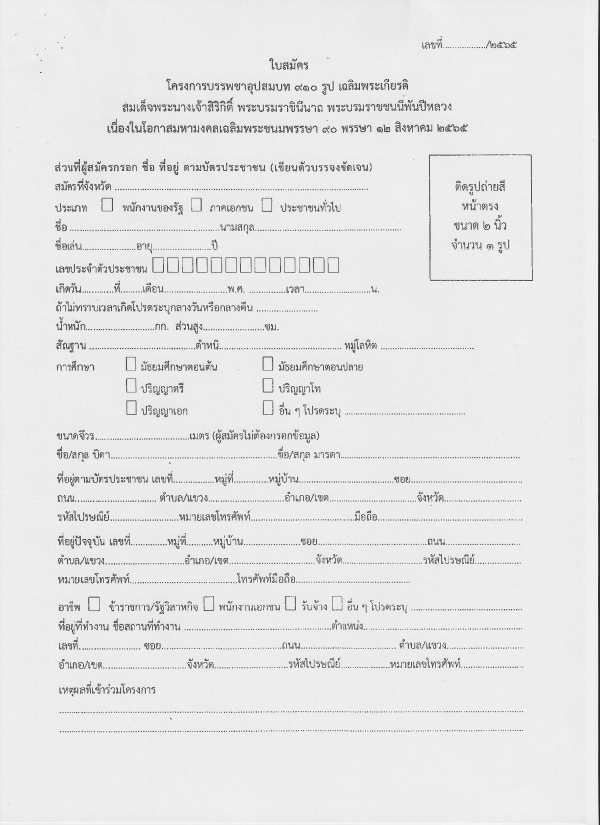 เลขที่................./๒๕๖๕
ใบสมัคร
โครงการบรรพชาอุปสมบท ๙๑๐ รูป เฉลิมพระเกียรติ
สมเด็จพระนางเจ้าสิริกิติ์ พระบรมราชินีนาถ พระบรมราชชนนีพันปีหลวง
เนื่องในโอกาสมหามงคลเฉลิมพระชนมพรรษา ๙๐ พรรษา ๑๒ สิงหาคม ๒๕๖๕
ส่วนที่ผู้สมัครกรอก ชื่อ ที่อยู่ ตามบัตรประชาชน (เขียนตัวบรรจงชัดเจน)
สมัครที่จังหวัด ....................................................................
ประเภท ☐ พนักงานของรัฐ ☐ ภาคเอกชน ☐ ประชาชนทั่วไป
ชื่อ ..........................................นามสกุล..........................................
ชื่อเล่น................อายุ..................ปี
เลขประจำตัวประชาชน ☐☐☐☐☐☐☐☐☐☐☐☐☐
ติดรูปถ่ายสี
หน้าตรง
ขนาด ๒ นิ้ว
จำนวน ๑ รูป
เกิดวัน...........ที่........เดือน....................พ.ศ. .............เวลา....................น.
ถ้าไม่ทราบเวลาเกิดโปรดระบุกลางวันหรือกลางคืน ...................
น้ำหนัก.....................กก. ส่วนสูง...................ซม.
สัณฐาน ................................ตำหนิ..................................... หมู่โลหิต ............................
การศึกษา ☐ มัธยมศึกษาตอนต้น ☐ มัธยมศึกษาตอนปลาย
☐ ปริญญาตรี ☐ ปริญญาโท
☐ ปริญญาเอก ☐ อื่น ๆ โปรดระบุ ....................................
ขนาดจีวร............................เมตร (ผู้สมัครไม่ต้องกรอกข้อมูล)
ชื่อ/สกุล บิดา..................................................ชื่อ/สกุล มารดา.......................................................
ที่อยู่ตามบัตรประชาชน เลขที่............หมู่ที่..........หมู่บ้าน.............................ซอย..................................
ถนน......................... ตำบล/แขวง.......................อำเภอ/เขต..........................จังหวัด.......................
รหัสไปรษณีย์.....................หมายเลขโทรศัพท์...............................มือถือ...........................................
ที่อยู่ปัจจุบัน เลขที่...........หมู่ที่..........หมู่บ้าน.................ซอย.................................ถนน.......................
ตำบล/แขวง........................อำเภอ/เขต..........................จังหวัด................................รหัสไปรษณีย์..............
หมายเลขโทรศัพท์................................โทรศัพท์มือถือ..................................
อาชีพ ☐ ข้าราชการ/รัฐวิสาหกิจ ☐ พนักงานเอกชน ☐ รับจ้าง ☐ อื่น ๆ โปรดระบุ ..................................
ที่อยู่ที่ทำงาน ชื่อสถานที่ทำงาน .............................................ตำแหน่ง................................................
เลขที่................... ซอย...................................ถนน............................. ตำบล/แขวง.......................
อำเภอ/เขต.........................จังหวัด......................รหัสไปรษณีย์...............หมายเลขโทรศัพท์...................
เหตุผลที่เข้าร่วมโครงการ
..........................................................................................................................................
..........................................................................................................................................